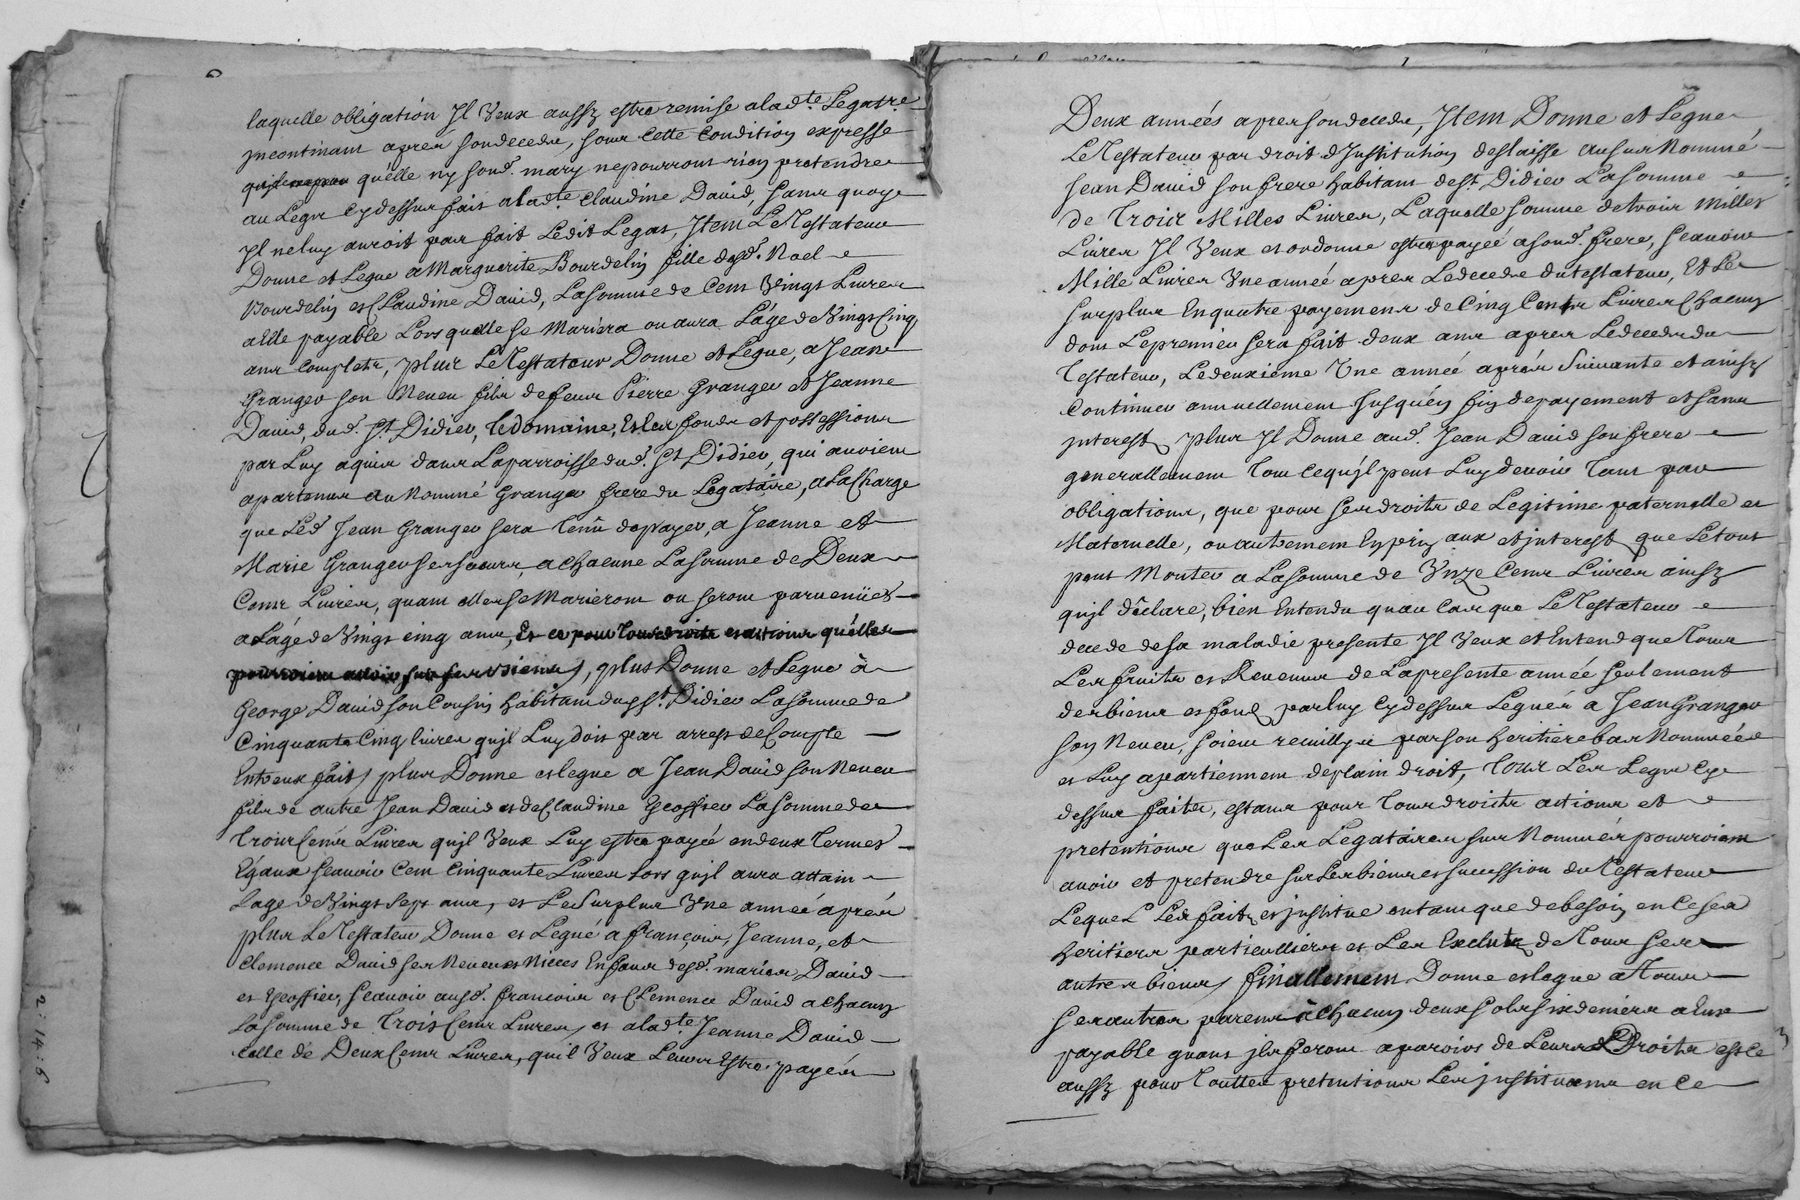 laquelle obligation Il Veux aussy estre remise a lad.te Legatre
jncontinant aprés son deceds, sous Cette Condition expresse
quélle ny son d. mary ne pourront rien pretendre
au Legs Cy dessus fait a lad.te Claudine David, Sans quoy
Il ne luy auroit pas fait Ledit Legat, Item Le Testateur
Donne et Legue a Marguerite Bourdelin fille desd. Noel
Bourdelin et Claudine David, La Somme de Cent Vingt Livres
a Elle payable Lors quelle Se Mariera ou aura L'áge de Vingt Cinq
ans Complets, plus Le Testateur Donne et Legue, a Jean
Granger son Neveu fils de feus Pierre Granger et Jeanne
David, dud. St. Didier, le domaine, Et Les fonds et possessions
par Luy aquis dans La parroisse dud. St Didier, qui avoient
apartenus au Nommé Granger frere du Legataire, a La Charge
que Led Jean Granger Sera Tenû de payer, a Jeanne et
Marie Granger Ses Soeurs, a Chacune La Somme de Deux
Cents Livres, quant elles Se Marieront ou Seront parvenües
a L'áge de Vingt cinq ans, Et ce pour Tous droits et actions qu'élles
pourroient avoir sur ses biens, plus Donne et Legue à
George David son Cousin habitant dud St. Didier La Somme de
Cinquante Cinq livres qu'jl Luy doit par arrest de Compte
Entreux fait, plus Donne et legue a Jean David son Neveu
fils de autre Jean David et de Claudine Geoffier La Somme de
Trois Cents Livres qu'jl Veux Luy estre payé en deux Termes
Egaux Scavoir Cent Cinquante Livres Lors qu'jl aura attain
Lage de Vingt Sept ans, et Le Surplus Vne année aprés
plus Le Testateur Donne et Legué a françois, Jeanne, et
Clemence David Ses Neveu et Nieces Enfans desd. mariés David
et Geoffier, Scavoir ausd. francois et Clemence David a Chacun
La Somme de Trois Cents Livres, et a lad.te Jeanne David
Celle de Deux Cents Livres, qu'il Veux Leurs Estre payés
2:14:6
Deux années apres son deceds, Item Donne et Legue
Le Testateur par droit d'Institution deslaisse au sus Nommé
Jean David son frere habitant de St. Didier La Somme
de Trois Milles Livres, Laquelle Somme de trois Milles
Livres Il Veux et ordonne estre payée a son d. frere, Scavoir
Mille Livres Vne année apres Le deceds du testateur, Et Le
Surplus En quatre payements de Cinq Cents Livres Chacun
dont Le premier Sera fait deux ans apres Le deceds du
Testateur, Le deuxieme Vne année aprés Suivante et ainsy
Continuer annuellement Jusqu'én fin de payement et Sans
jnterest, plus Il Donne aud. Jean David son frere
generallement Tout Ce qu'jl peut Luy devoir Tant par
obligations, que pour Ses droits de Legitime paternelle et
Maternelle, ou autrement En principaux et jnterest, que Le tout
peut Monter a La Somme de Vnze Cents Livres ainsy
qu'jl déclare, bien Entendu qu'au Cas que Le Testateur
decede de sa maladie presente Il Veux et Entend que Tous
Les fruits et Revenus de La presente année Seulement
des biens et fonds par luy Cy dessus Legués a Jean Granger
son Neveu, Soient recuillys par son heritiere bas Nommée
et Luy apartiennent de plain droit, Tous Les Legs Cy
dessus faits, estans pour Tous droits actions et
pretentions que Les Legataires Sus Nommés pourroient
avoir et pretendre sur Les biens et succession du Testateur
Lequel Les fait et jnstitue entant que de besoin en Ce Ses
heritiers particulliers et Les Exclute de Tous Ses
autres biens, finallement Donne et legue a Tous
Ses autres parens à Chacun deux Sols Six deniers a Eux
payable quant jls feront aparoir de Leurs Droits est Ce
aussy pour Touttes pretentions Les jnstituant en Ce
3